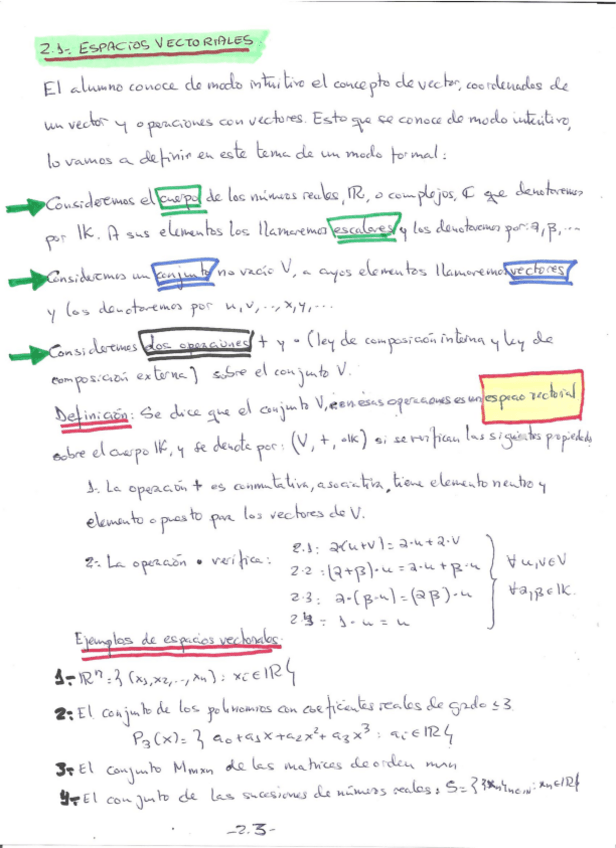 2.1-. ESPACIOS VECTORIALES
El alumno conoce de modo intuitivo el concepto de vector, coordenadas de
un vector y operaciones con vectores. Esto que se conoce de modo intuitivo,
lo vamos a definir en este tema de un modo formal:
Consideremos el cuerpo de los números reales, ℝ, o complejos, ℂ que denotaremos
por 𝕂. A sus elementos los llamaremos escalares y los denotaremos por: α, β, ...
Consideremos un conjunto no vacío V, a cuyos elementos llamaremos vectores
y los denotaremos por u, v, .., x, y, ...
Consideremos dos operaciones + y · (ley de composición interna y ley de
composición externa) sobre el conjunto V.
Definición: Se dice que el conjunto V, con esas operaciones es un espacio vectorial
sobre el cuerpo 𝕂, y se denota por: (V, +, ·𝕂) si se verifican las siguientes propiedades
1-. La operación + es conmutativa, asociativa, tiene elemento neutro y
elemento opuesto para los vectores de V.
2-. La operación · verifica:
2.1: α·(u+v) = α·u + α·v
2.2: (α+β)·u = α·u + β·u
2.3: α·(β·u) = (αβ)·u
2.4: 1·u = u
∀u,v∈V
∀α,β∈𝕂.
Ejemplos de espacios vectoriales:
1-. ℝⁿ = {(x₁, x₂, .., xₙ) : xᵢ∈ℝ}
2-. El conjunto de los polinomios con coeficientes reales de grado ≤ 3.
P₃(x) = {a₀+a₁x+a₂x²+a₃x³ : aᵢ∈ℝ}
3-. El conjunto Mₘₓₙ de las matrices de orden mxn
4-. El conjunto de las sucesiones de números reales: S = {{xₙ}ₙ∈ℕ : xₙ∈ℝ}
-2.3-